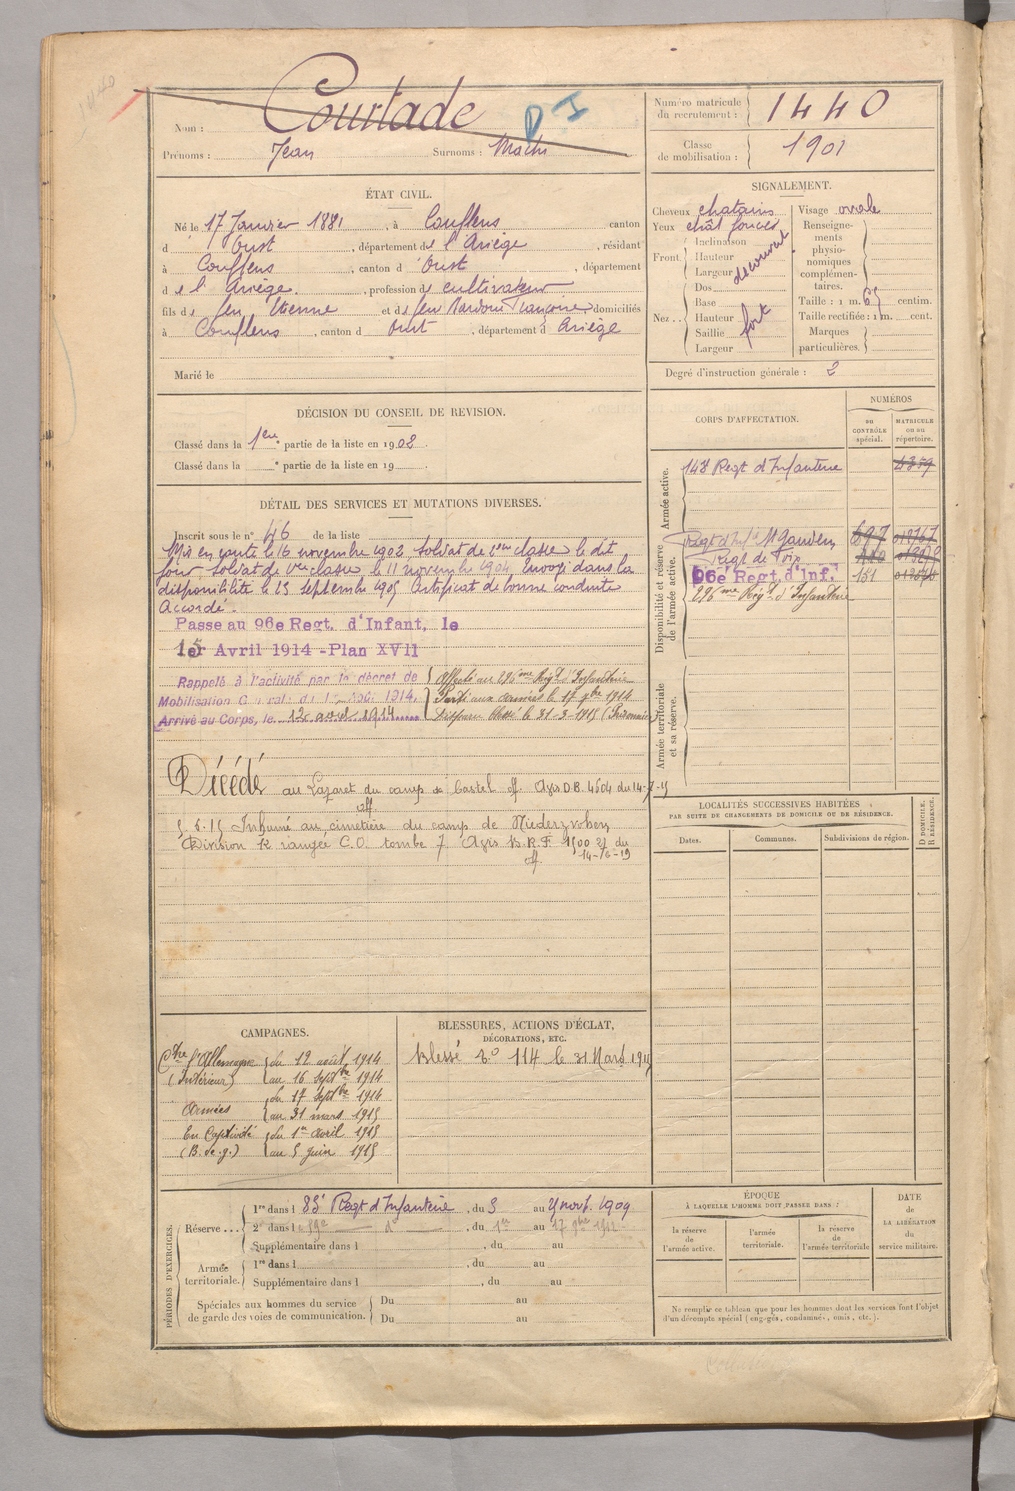 Nom : Courtade
Prénoms : Jean Surnoms :
Numéro matricule du recrutement : 1440
Classe de mobilisation : 1901
ÉTAT CIVIL.
Né le 17 Janvier 1881, à Couflens canton
d' Oust, département de l'Ariège, résidant
à Couflens, canton d' Oust, département
de l'Ariège, profession de cultivateur
fils de feu Etienne et de feu Françoise domiciliés
à Couflens, canton d' Oust, département d' Ariège
Marié le
SIGNALEMENT.
Cheveux chatains
Yeux chât foncés
Front. Inclinaison
Hauteur
Largeur découvert
Nez.. Dos
Base
Hauteur fort
Saillie
Largeur
Visage ovale
Renseignements physionomiques complémentaires.
Taille : 1 m. 65 centim.
Taille rectifiée : 1 m. cent.
Marques particulières.
Degré d'instruction générale : 2
DÉCISION DU CONSEIL DE REVISION.
Classé dans la 1ere partie de la liste en 1902.
Classé dans la e partie de la liste en 19
DÉTAIL DES SERVICES ET MUTATIONS DIVERSES.
Inscrit sous le n° 46 de la liste
Mis en route le 16 novembre 1902. Soldat de 2eme classe le dit
jour. Soldat de 1re classe le 11 novembre 1904. Envoyé dans la
disponibilité le 23 septembre 1905 Certificat de bonne conduite
Accordé.
Passe au 96e Regt. d'Infant. le
1er Avril 1914 - Plan XVII
Rappelé à l'activité par le décret de
Mobilisation Générale du 1er Août 1914.
Arrivé au Corps, le 12 août 1914
Affecté au 296me Régt d'Infanterie
Parti aux armées le 17 7bre 1914
Disparu blessé le 31-3-1915 (Prisonnier)
Décédé au Lazaret du camp de Cassel off. Avis D.B. 4604 du 14-7-15
5.6.15 Inhumé au cimetière du camp de Niederzwehren
Division K rangée C.O. tombe 7. Avis B.R.F. 1500 27 du
14-10-19
CORPS D'AFFECTATION.
NUMÉROS
DU CONTRÔLE spécial.
MATRICULE OU DU répertoire.
Armée active.
143 Regt d'Infanterie 4359
Disponibilité et réserve de l'armée active.
Regt d'Infie St Gaudens 697
Regt de Foix
96e Regt. d'Inf. 151
296me Régt d'Infanterie
Armée territoriale et sa réserve.
LOCALITÉS SUCCESSIVES HABITÉES
PAR SUITE DE CHANGEMENTS DE DOMICILE OU DE RÉSIDENCE.
Dates. Communes. Subdivisions de région. D DOMICILE. R RÉSIDENCE.
CAMPAGNES.
Ctre l'Allemagne du 12 août 1914
(Intérieur) au 16 septbre 1914
du 17 septbre 1914
Armées au 31 mars 1915
En Captivité du 1er avril 1915
(B. de g.) au 5 juin 1915
BLESSURES, ACTIONS D'ÉCLAT,
DÉCORATIONS, ETC.
Blessé 114 le 31 Mars 1915
PÉRIODES D'EXERCICES.
Réserve... 1re dans l 83e Regt d'Infanterie, du 3 au 9bre. 1909
2e dans l 59e d°, du 1er au 17 9bre 1912
Supplémentaire dans l , du au
Armée territoriale. 1re dans l , du au
Supplémentaire dans l , du au
Spéciales aux hommes du service de garde des voies de communication. Du au
Du au
ÉPOQUE
À LAQUELLE L'HOMME DOIT PASSER DANS :
la réserve de l'armée active. l'armée territoriale. la réserve de l'armée territoriale
DATE DE LA LIBÉRATION du service militaire.
Ne remplir ce tableau que pour les hommes dont les services font l'objet
d'un décompte spécial (engagés, condamnés, omis, etc.).